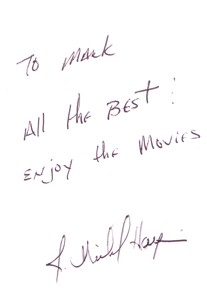 To Mark
All the Best!
Enjoy the Movies
J. Michael